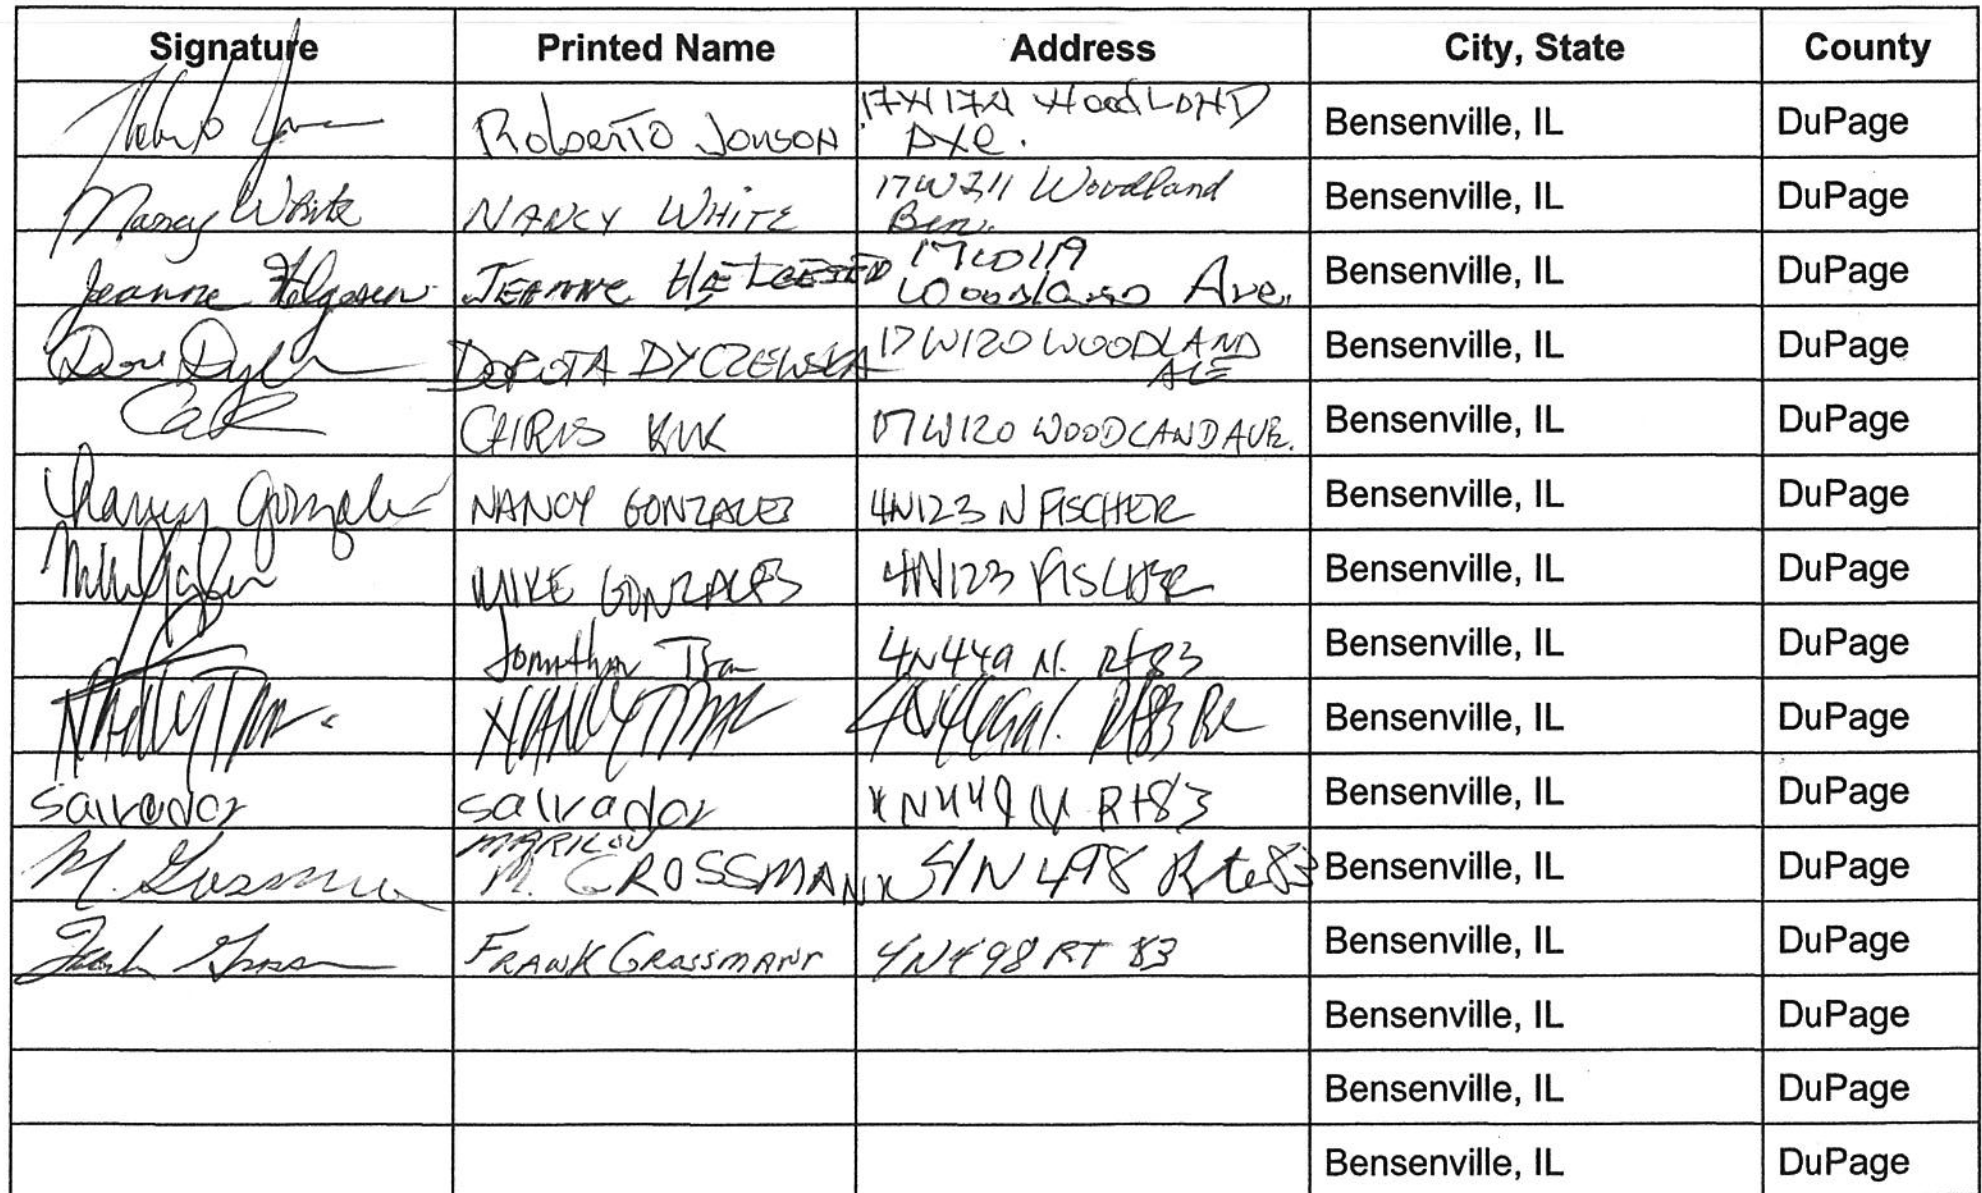 Signature Printed Name Address City, State County
Roberto Jonson Woodland Ave. Bensenville, IL DuPage
Nancy White NANCY WHITE 17W311 Woodland Bensenville, IL DuPage
Ben.
Jeanne Helgesen JEANNE 17W119 Bensenville, IL DuPage
Woodland Ave.
DOROTA DYCZEWSKA 17W120 WOODLAND Bensenville, IL DuPage
AVE
CHRIS KUK 17W120 WOODLAND AVE. Bensenville, IL DuPage
Nancy Gonzales NANCY GONZALES 4N123 N FISCHER Bensenville, IL DuPage
MIKE GONZALES 4N123 FISCHER Bensenville, IL DuPage
Jonathan Tran 4N449 N. Rt83 Bensenville, IL DuPage
NANCY Rt83 Bensenville, IL DuPage
Salvador Salvador 4N449 N Rt83 Bensenville, IL DuPage
MARILOU
M. Grossmann M. GROSSMANN 4N498 Rte83 Bensenville, IL DuPage
Frank Grossmann FRANK GROSSMANN 4N498 RT 83 Bensenville, IL DuPage
Bensenville, IL DuPage
Bensenville, IL DuPage
Bensenville, IL DuPage